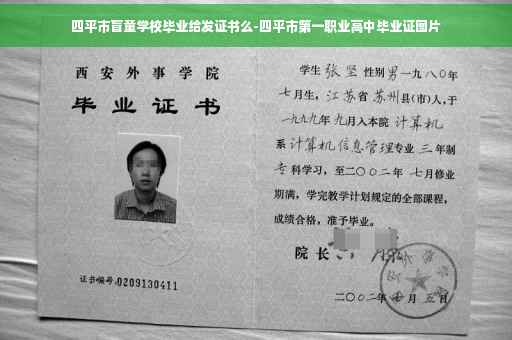 四平市盲童学校毕业给发证书么-四平市第一职业高中毕业证图片
西安外事学院
毕业证书
证书编号:0209130411
学生张坚性别男一九八〇年
七月生,江苏省苏州县(市)人,于
一九九九年九月入本院计算机
系计算机信息管理专业三年制
专科学习,至二〇〇二年七月修业
期满,学完教学计划规定的全部课程,
成绩合格,准予毕业。
院长
二〇〇二年 月五日